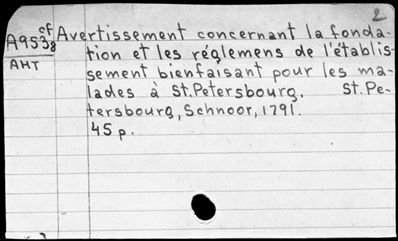 2
cf Avertissement concernant la fonda-
A9538 tion et les réglemens de l'établis-
AHT sement bienfaisant pour les ma-
lades à St.Petersbourg. St.Pe-
tersbourg, Schnoor, 1791.
45 p.